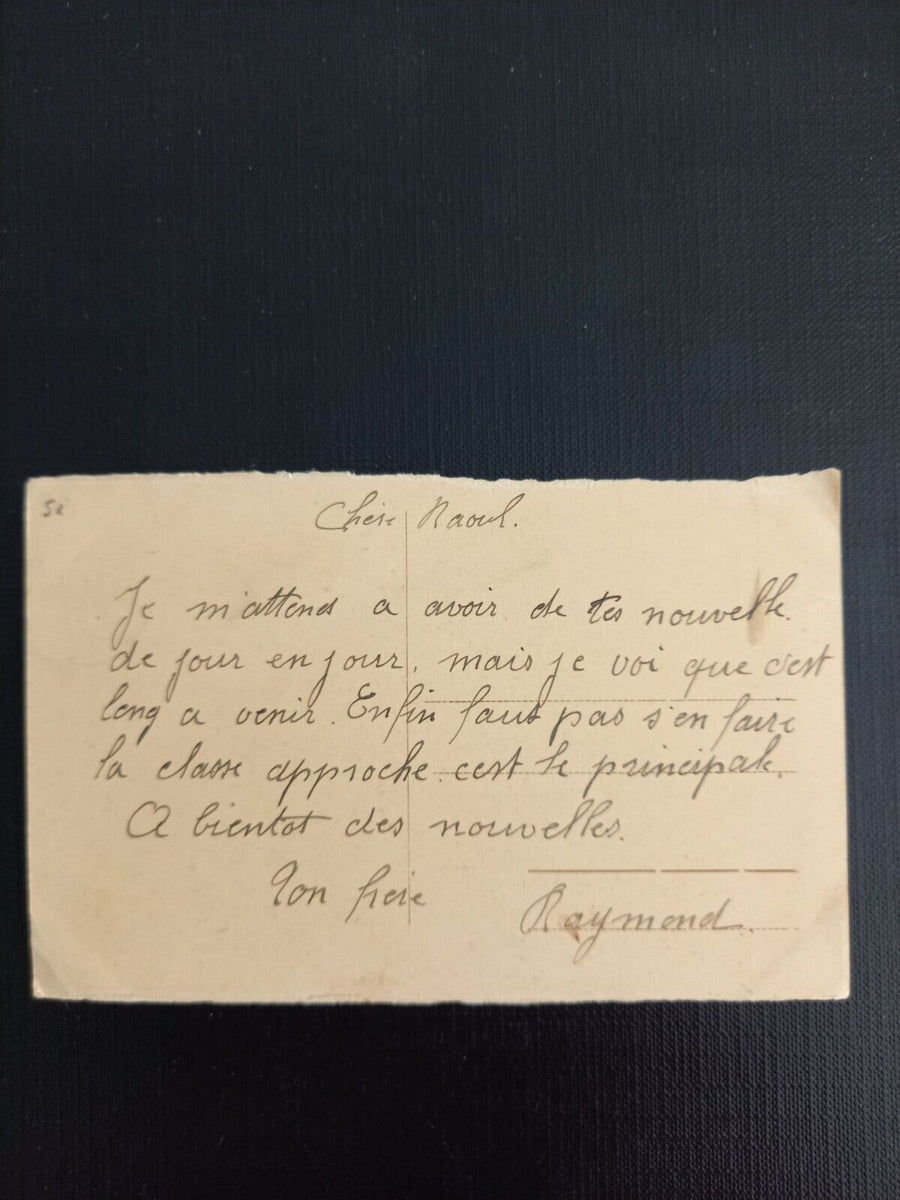 5€
Chère Raoul.
Je m'attend a avoir de tes nouvelle.
de jour en jour, mais je voi que c'est
long a venir. Enfin faut pas s'en faire
la classe approche c'est le principale.
A bientot des nouvelles.
Ton frère
Raymond.